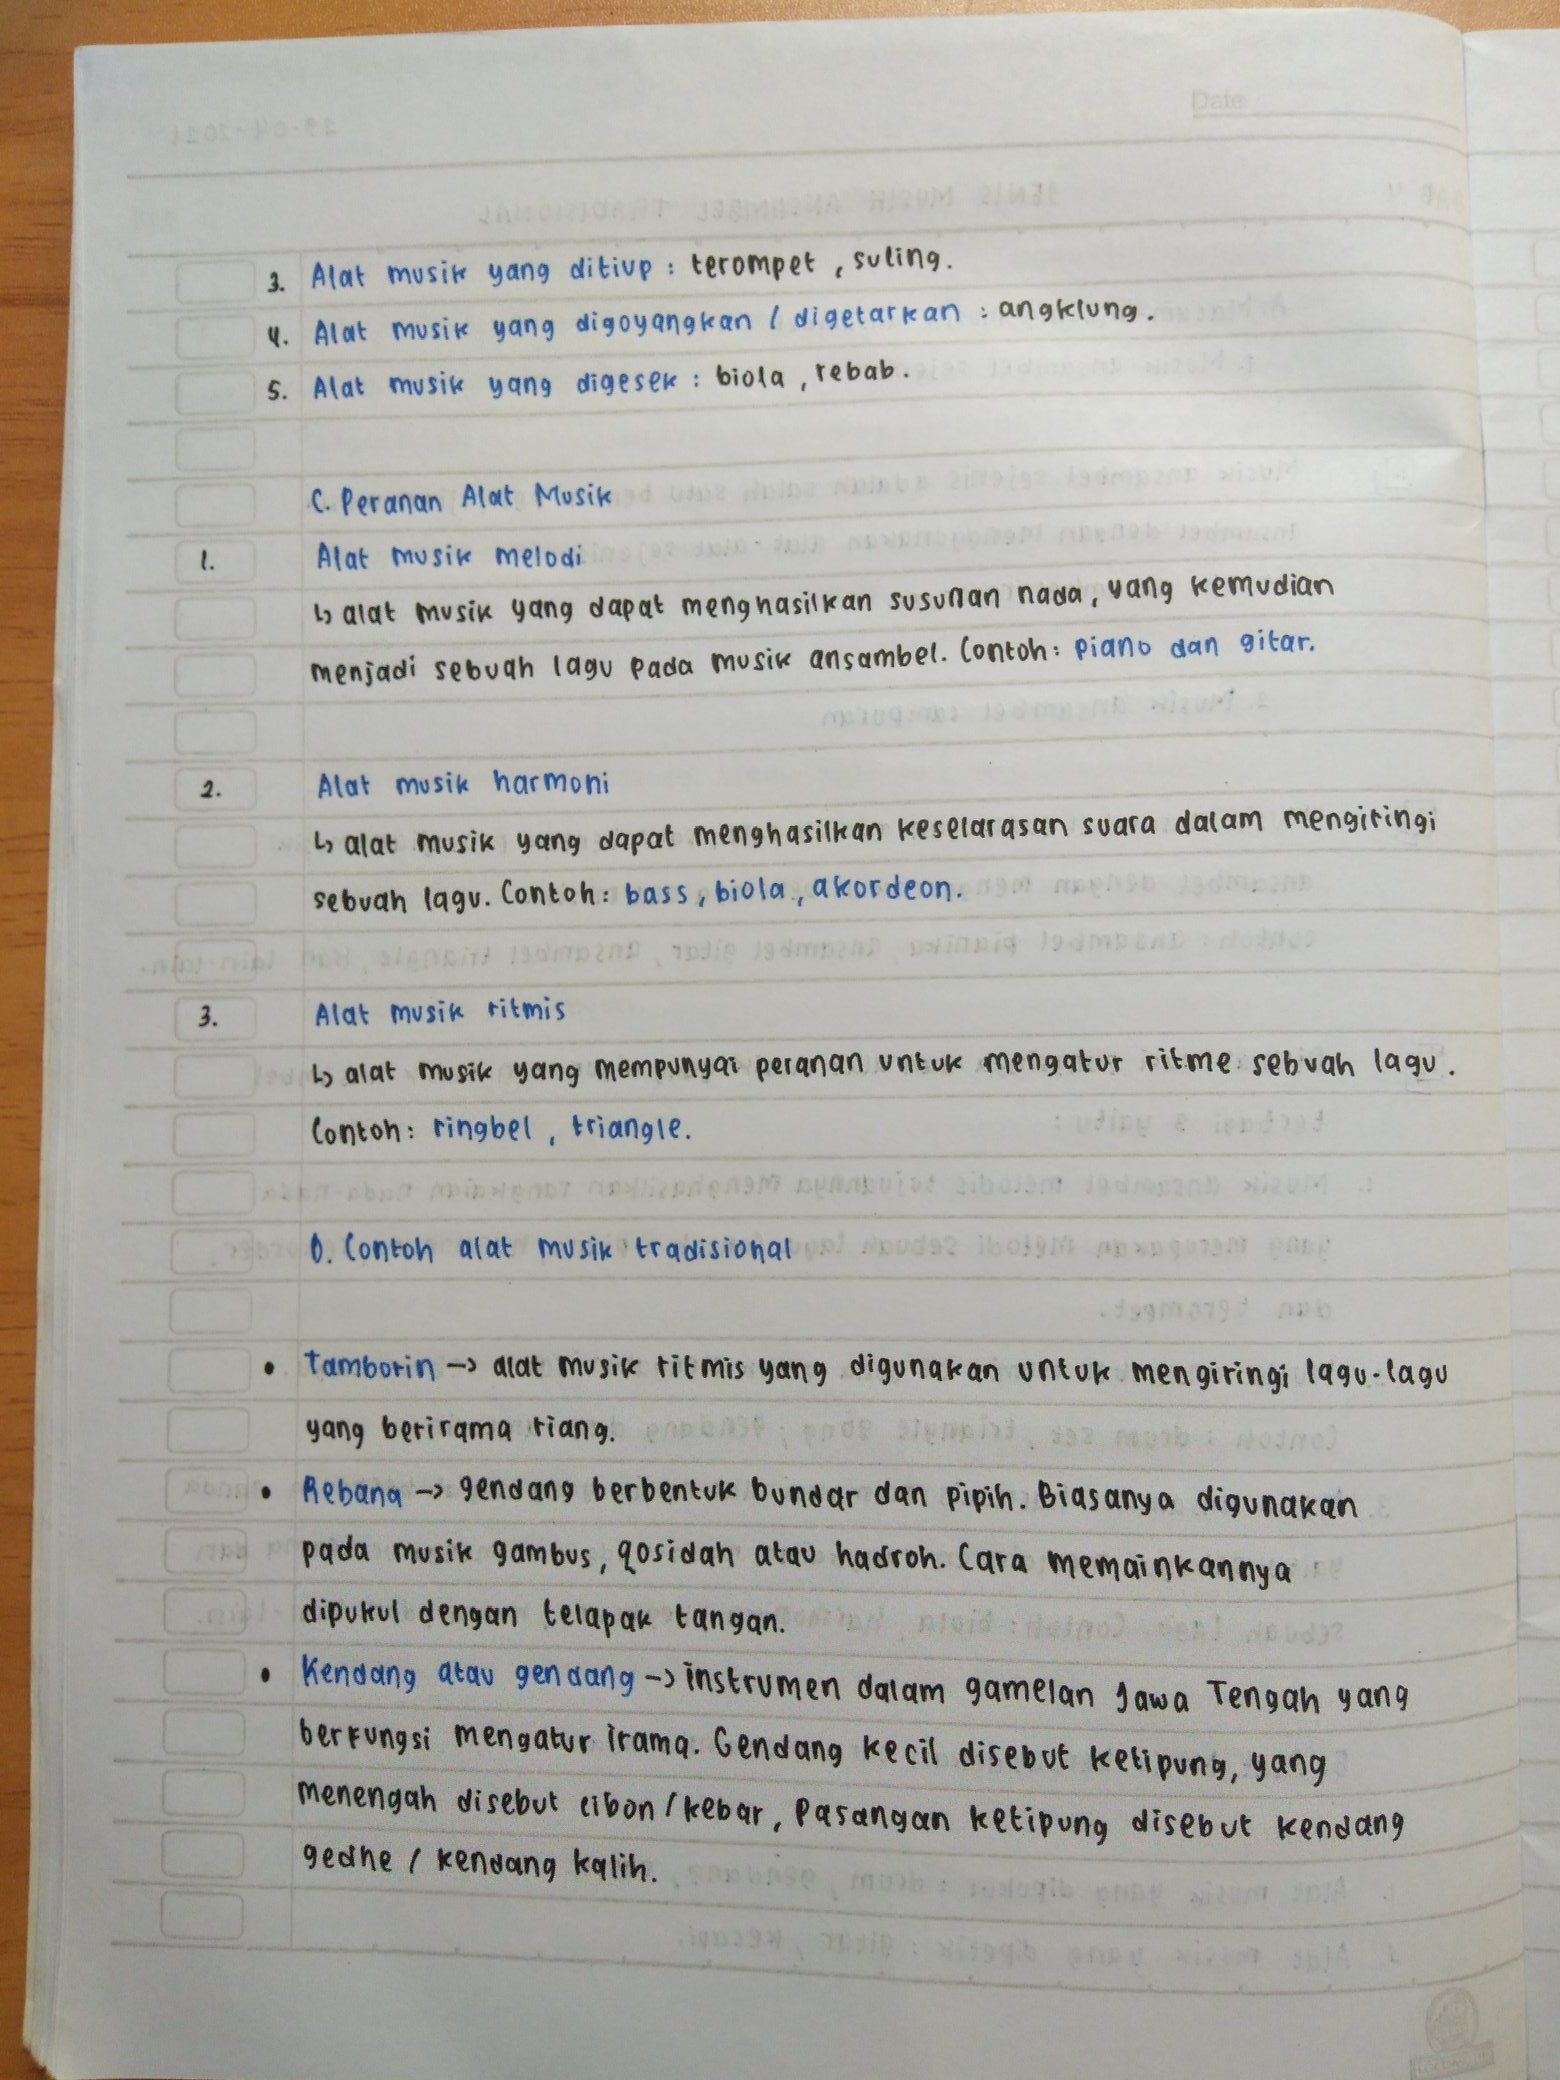 Date
3. Alat musik yang ditiup : terompet , suling.
4. Alat musik yang digoyangkan / digetarkan : angklung.
5. Alat musik yang digesek : biola , rebab.
C. Peranan Alat Musik
1. Alat musik melodi
↳ alat musik yang dapat menghasilkan susunan nada, yang kemudian
menjadi sebuah lagu pada musik ansambel. Contoh : piano dan gitar.
2. Alat musik harmoni
↳ alat musik yang dapat menghasilkan keselarasan suara dalam mengiringi
sebuah lagu. Contoh : bass, biola, akordeon.
3. Alat musik ritmis
↳ alat musik yang mempunyai peranan untuk mengatur ritme sebuah lagu.
Contoh : ringbel , triangle.
D. Contoh alat musik tradisional
• Tamborin -> alat musik ritmis yang digunakan untuk mengiringi lagu-lagu
yang berirama riang.
• Rebana -> gendang berbentuk bundar dan pipih. Biasanya digunakan
pada musik gambus, qosidah atau hadroh. Cara memainkannya
dipukul dengan telapak tangan.
• Kendang atau gendang -> instrumen dalam gamelan Jawa Tengah yang
berfungsi mengatur irama. Gendang kecil disebut ketipung, yang
menengah disebut cibon / kebar, Pasangan ketipung disebut kendang
gedhe / kendang kalih.